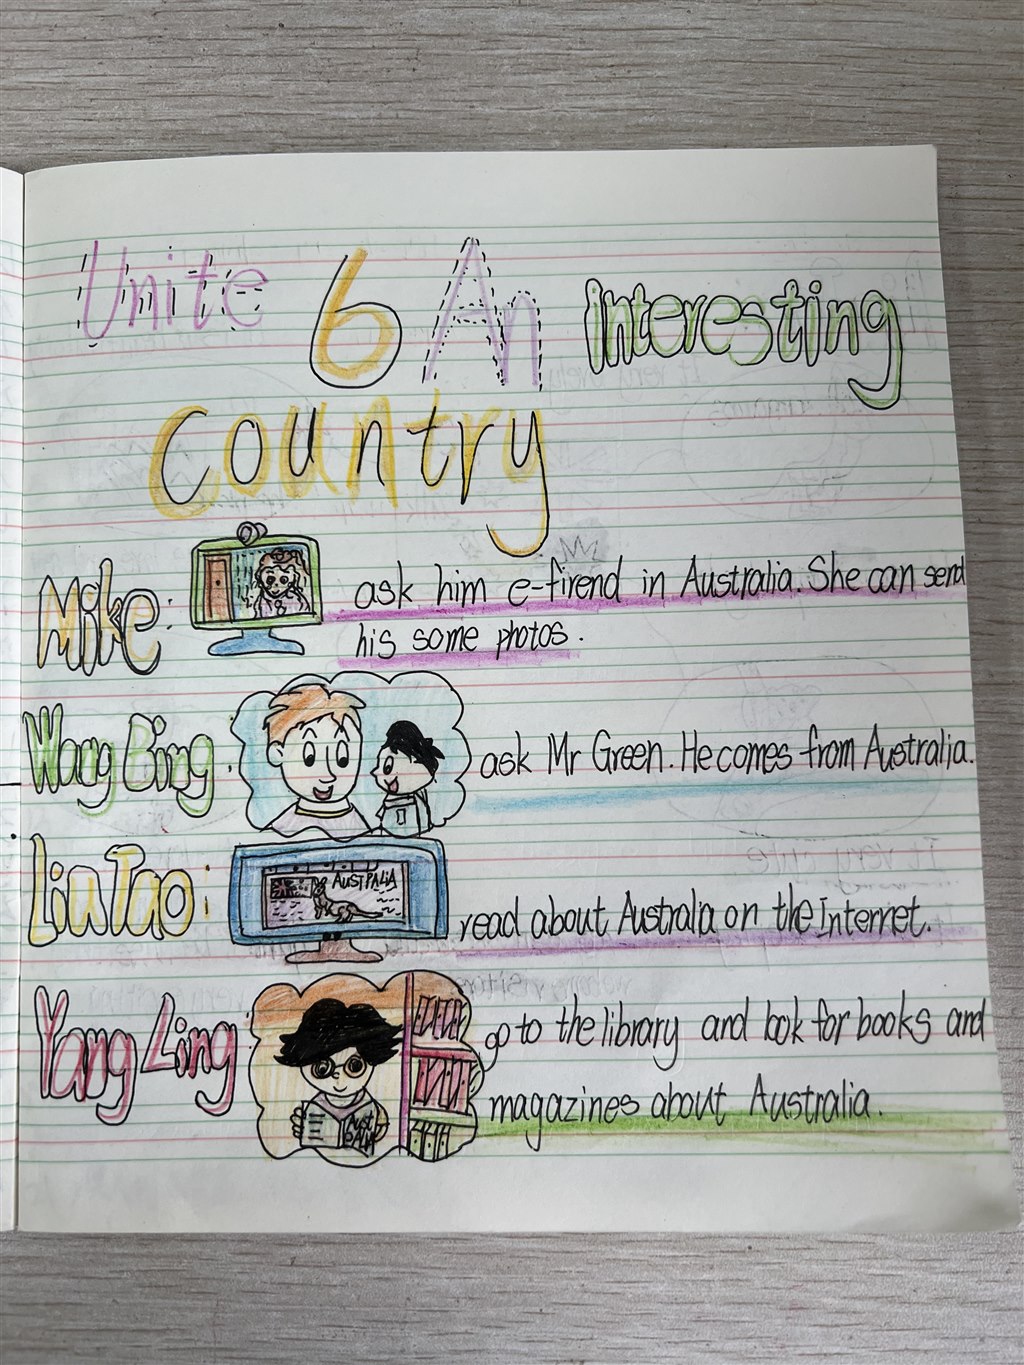 Unite 6 An Interesting
country
Mike: ask him e-firend in Australia. She can send
his some photos.
Wang Bing: ask Mr Green. He comes from Australia.
Liu Tao: AUSTRALIA read about Australia on the Internet.
Yang Ling: go to the library and look for books and
magazines about Australia.